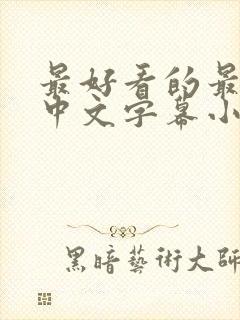 最好看的最
中文字幕小
黑暗藝術大師